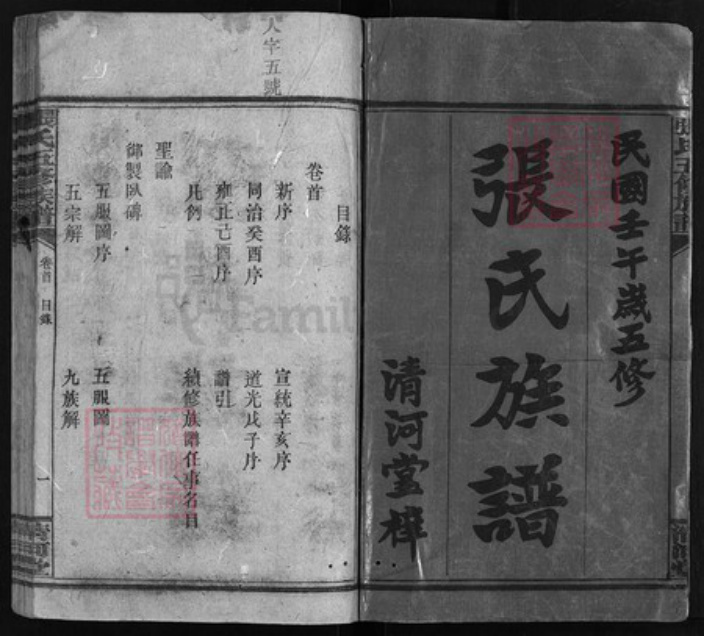 民國壬午歲五修
張氏族譜
清河堂梓
人字五號
目錄
卷首
新序
宣統辛亥序
同治癸酉序
道光戊子序
雍正己酉序
譜引
凡例
續修族譜任事名目
聖諭
御製臥碑
五服圖序
五服圖
五宗解
九族解
張氏五修族譜
卷首 目錄
一
清河堂